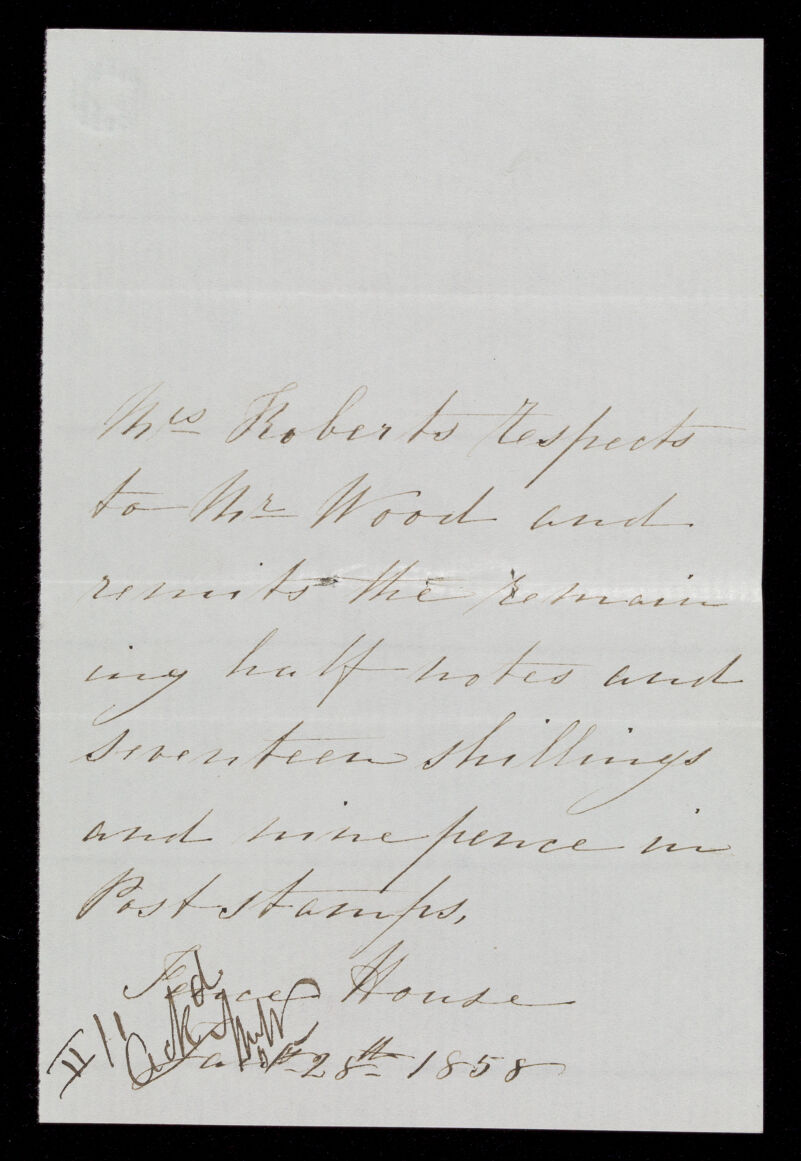 Mrs Roberts respects
to Mr Wood and
remits the remain
ing half notes and
seventeen shillings
and nine pence in
Post stamps,
House
28th 1858
II
Ackd